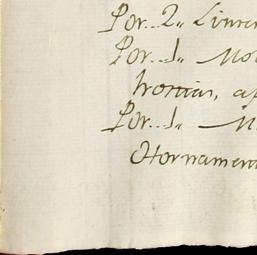 Por.. 2,, Linre
Por.. 1,, Mo
hrorias, a
Por.. 1,, M
Ornament